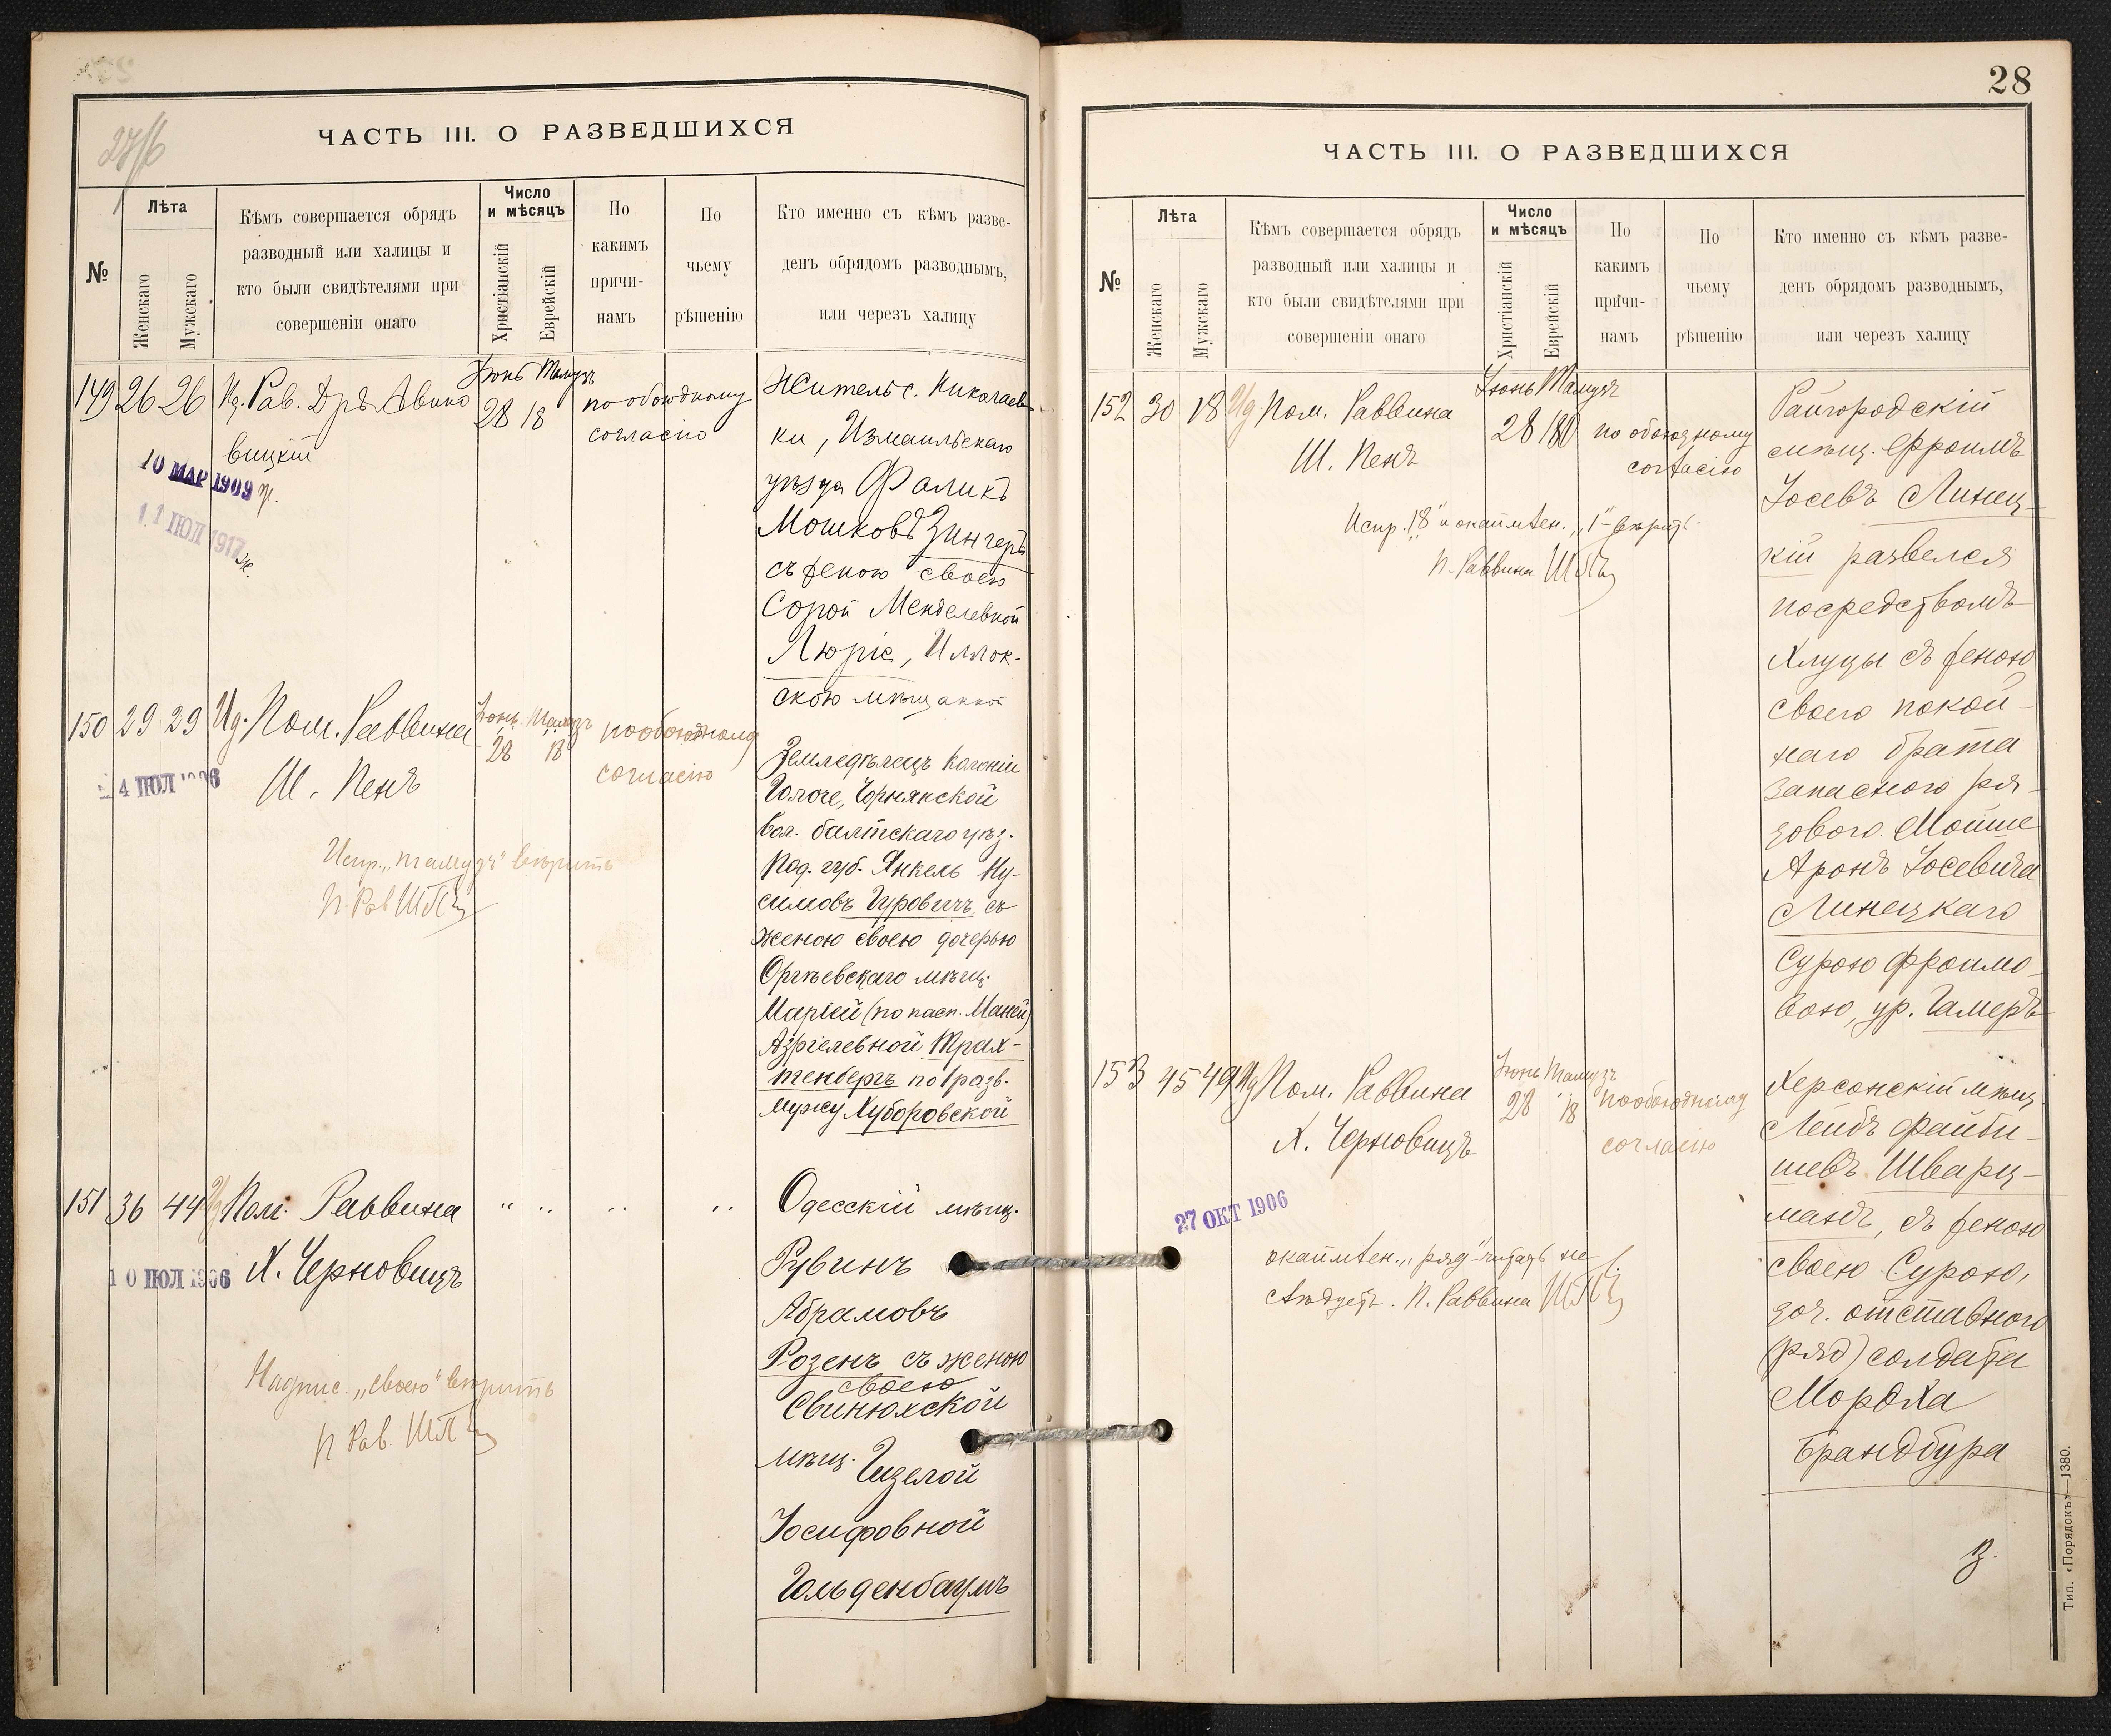 27/б
ЧАСТЬ III. О РАЗВЕДШИХСЯ
№
Лѣта
Женскаго
Мужскаго
Кѣмъ совершается обрядъ
разводный или халицы и
кто были свидѣтелями при
совершеніи онаго
Число
и мѣсяцъ
Христіанскій
Еврейскій
По
какимъ
причи-
намъ
По
чьему
рѣшенію
Кто именно съ кѣмъ разве-
денъ обрядомъ разводнымъ,
или черезъ халицу
149 26 26
Рав. Дръ Авино
вицкій
Іюнь Тамузъ
28 18
по обоюдному
согласію
10 МАР 1909
11 ІЮЛ 1917
Житель с. Николаев-
ки, Измаильскаго
уѣзда Фаликъ
Мошковъ Зингеръ
съ женою своею
Сорой Менделевной
Люріе,
скою мѣщанкой
150 29 29
Ид. Пом. Раввина
Ш. Пенъ
Іюнь Тамузъ
28 18
по обоюдному
согласію
4 ІЮЛ 1906
Испр. „тамузъ" вѣрить
П. Рав
Земледѣлецъ колоніи
вол. балтскаго уѣз.
Под. губ. Янкель Ну-
симовъ Гуровичъ съ
женою своею дочерью
Оргѣевскаго мѣщ.
Маріей (по пасп. Маней)
Азріелевной Трах-
тенбергъ по 1 разв.
мужу Хуборовской
151 36 44
Пом. Раввина
Х. Черновицъ
" " " "
10 ІЮЛ 1906
Надпис. „своею" вѣрить
П Рав.
Одесскій мѣщ.
Рувинъ
Абрамовъ
Розенъ съ женою
своею
Свинюхской
мѣщ. Гизелой
Іосифовной
Гольденбаумъ
28
ЧАСТЬ III. О РАЗВЕДШИХСЯ
№
Лѣта
Женскаго
Мужскаго
Кѣмъ совершается обрядъ
разводный или халицы и
кто были свидѣтелями при
совершеніи онаго
Число
и мѣсяцъ
Христіанскій
Еврейскій
По
какимъ
причи-
намъ
По
чьему
рѣшенію
Кто именно съ кѣмъ разве-
денъ обрядомъ разводнымъ,
или черезъ халицу
152 30 18
Ид Пом. Раввина
Ш. Пенъ
Іюнь Тамузъ
28
по обоюдному
согласію
Испр. „18" и окаймлен. „1"
П. Раввина
Райгородскій
мѣщ. Фроимъ
Іосевъ Линец-
кій развелся
посредствомъ
Хлуцы съ женою
своего покой-
наго брата
запаснаго ря-
дового Мойше
Аронъ Іосевича
Линецкаго
Сурою Фроимо-
вою, ур. Гамеръ
153 45 49
Ид Пом. Раввина
Х. Черновицъ
Іюнь Тамузъ
28 18
по обоюдному
согласію
27 ОКТ 1906
окаймлен. „ряд" читать не
слѣдуетъ. П. Раввина
Херсонскій мѣщ.
Лейбъ Файби-
шевъ Шварц-
манъ, съ женою
своею Сурою,
доч. отставного
(ряд) солдата
Мордха
Брандбура
Тип. «Порядокъ»—1380.